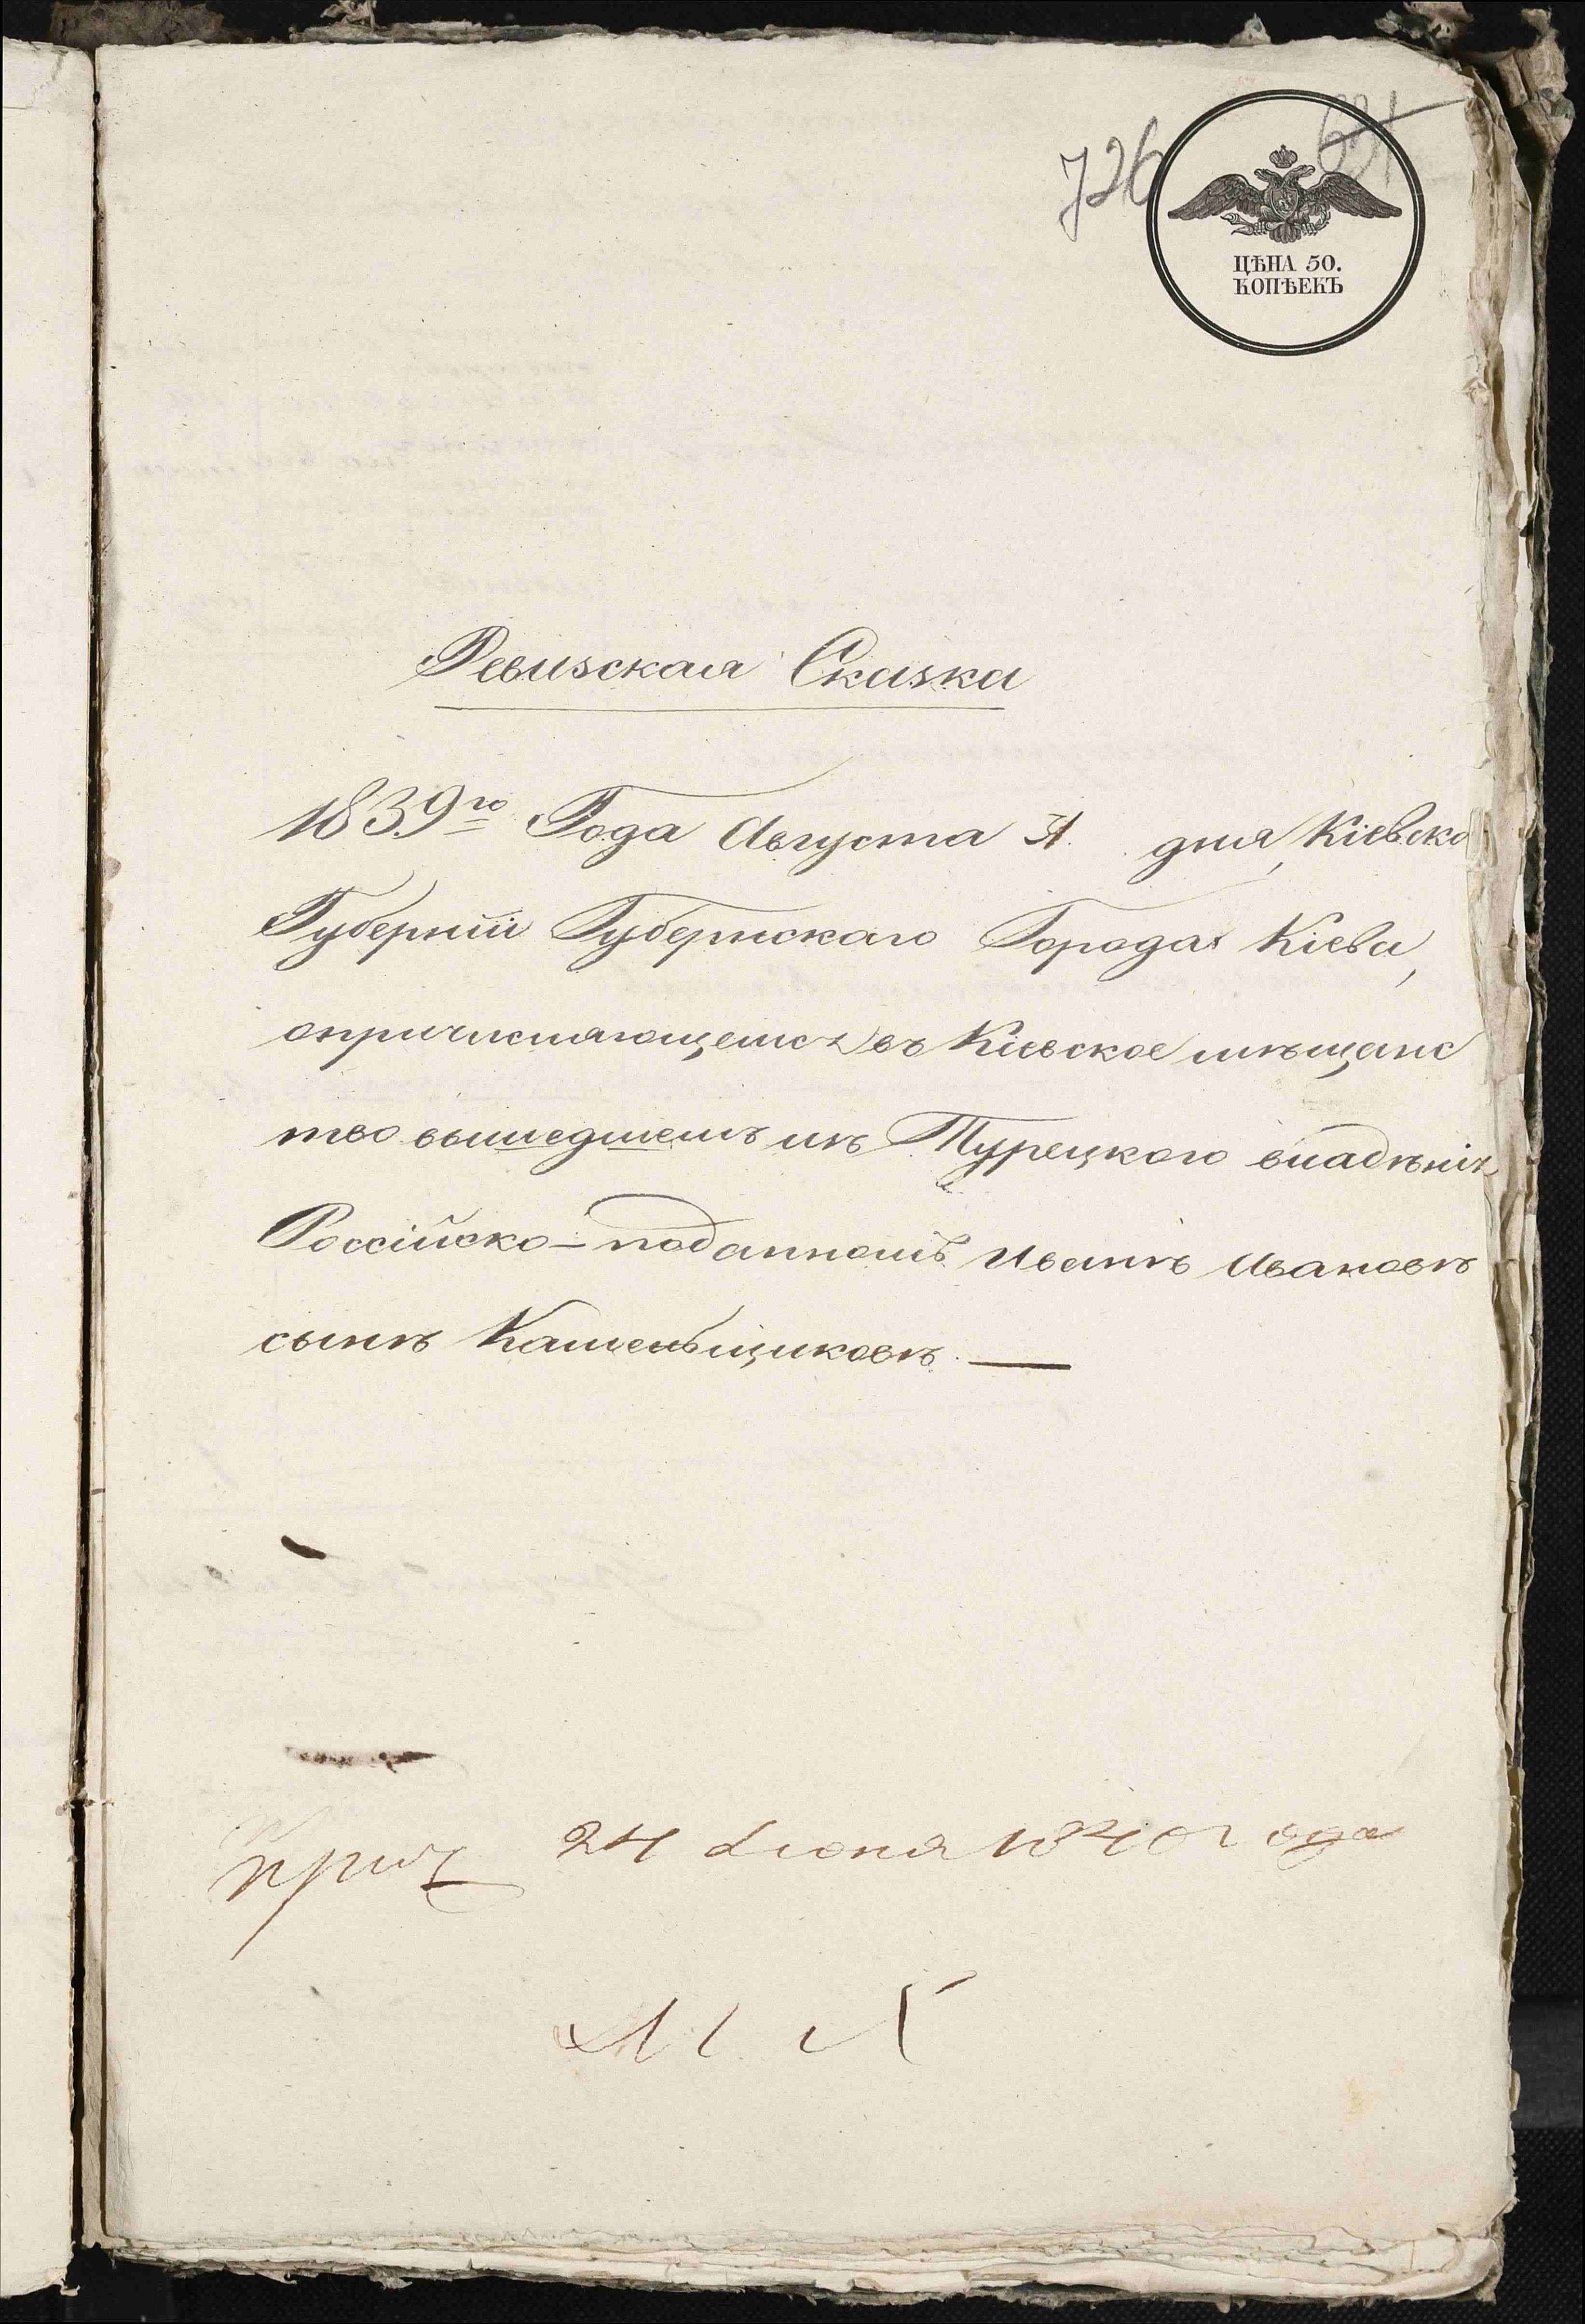 726
ЦѢНА 50.
КОПѢЕКЪ
Ревизская Сказка
1839го Года Августа 31. дня, Кіевско
Губерніи Губернскаго Города Кіева,
опричисляющемся въ Кіевское мѣщанс
тво вышедшемъ изъ Турецкого владѣнія
Россійско-подданномъ Иванѣ Ивановѣ
сынѣ Каменьщиковѣ. —
24 Июня 1840 года